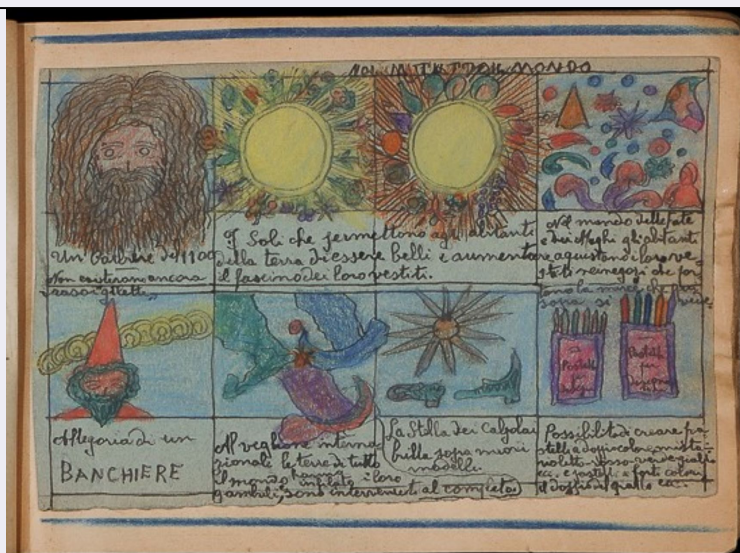 MONDO
Un Barbiere del 1100
Non esistevano ancora
rasoi gilette
I Soli che permettono agli abitanti
della terra di essere belli e aumentare
il fascino dei loro vestiti.
Nel mondo delle fate
e dei Maghi gli abitanti
acquistano i loro ve-
negozi che por
Allegoria di un
BANCHIERE
Al veglione interna
zionale le terre di tutto
il mondo hanno infilato i loro
gambali, sono intervenuti al completo
La Stella dei Calzolai
brilla sopra nuovi
modelli.
Pastelli
Pastelli
per
Disegno
Possibilità di creare pa
stelli a doppio colore, misti
violetto-rosso-verde-giallo
ecc. e pastelli a forti colori